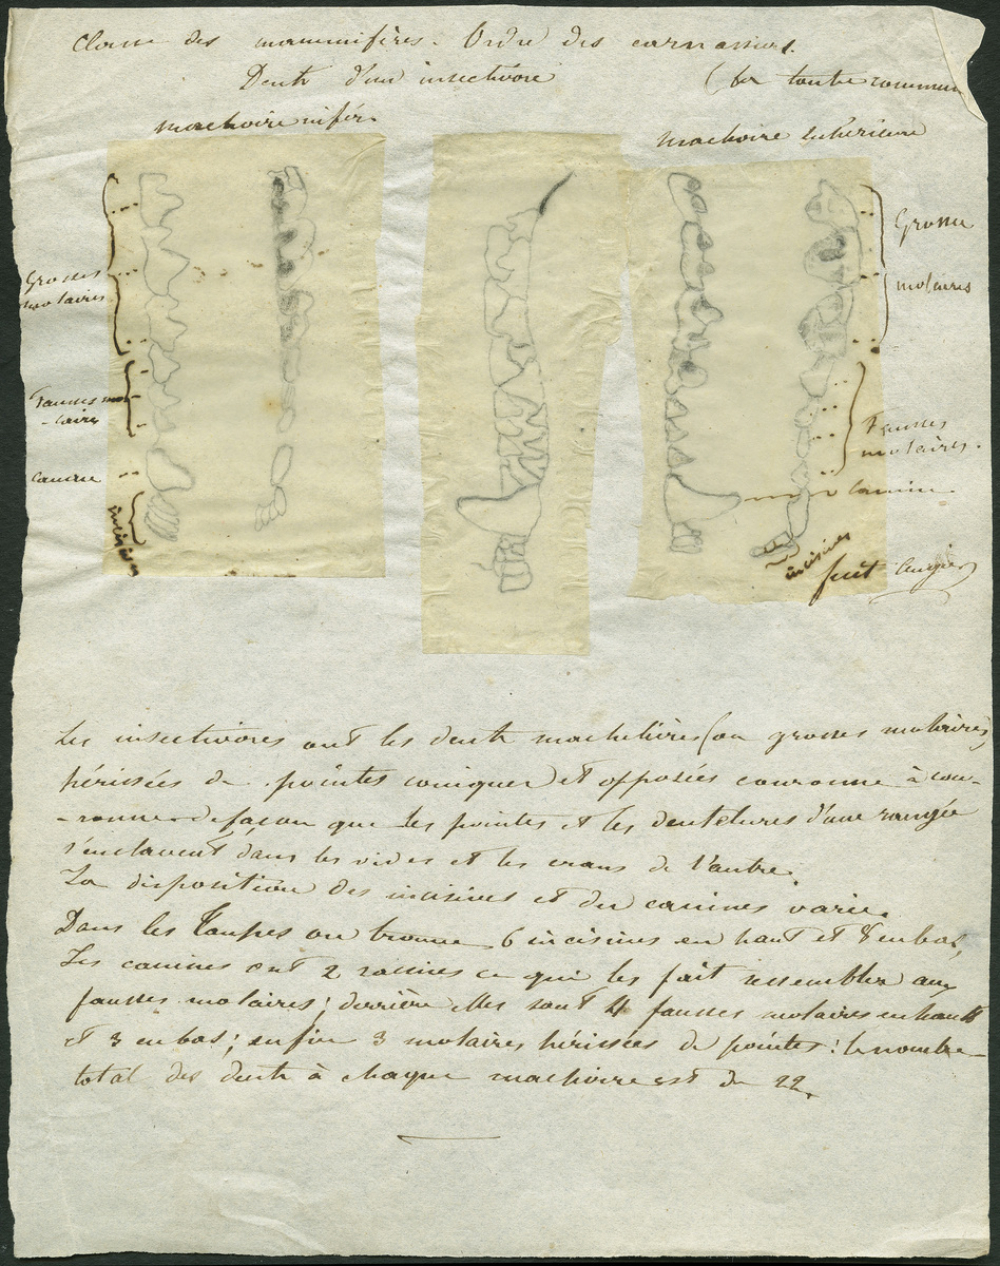 Classe des mammifères. Ordre des carnassiers.
Dents d'un insectivore (la taupe commune
machoire infér.
machoire supérieure
Grosses
molaires
Fausses mo-
-laires
canine
incisives
Grosses
molaires
Fausses
molaires.
canine
incisives
fait
Les insectivores ont les dents machelières (ou grosses molaires)
hérissées de pointes coniques et opposées couronne à cou-
-ronne de façon que les pointes et les dentelures d'une rangée
s'enclavent dans les vides et les crans de l'autre.
La disposition des incisives et des canines varie.
Dans les Taupes on trouve 6 incisives en haut et 8 en bas,
Les canines ont 2 racines ce qui les fait ressembler aux
fausses molaires; derrière elles sont 4 fausses molaires en haut
et 3 en bas; enfin 3 molaires hérissées de pointes: le nombre
total des dents à chaque machoire est de 22.